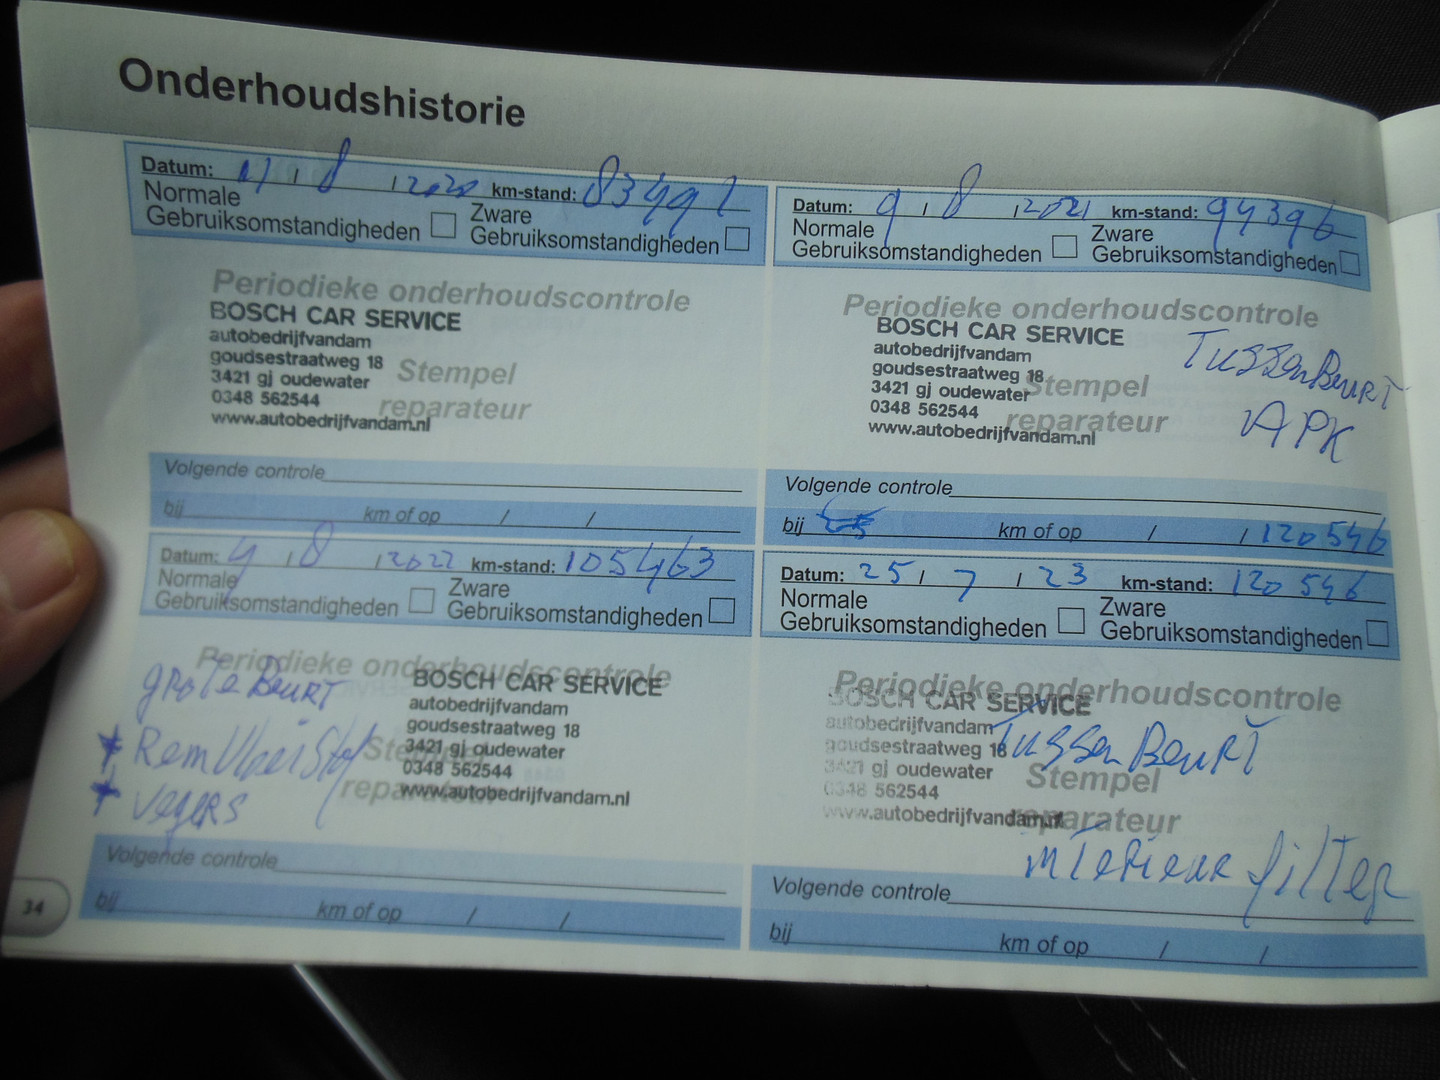 Onderhoudshistorie
Datum: 11 / 8 / 2020 km-stand: 83491
Normale Gebruiksomstandigheden Zware Gebruiksomstandigheden
Periodieke onderhoudscontrole
BOSCH CAR SERVICE
autobedrijfvandam
goudsestraatweg 18
3421 gj oudewater
0348 562544
www.autobedrijfvandam.nl
Stempel
reparateur
Volgende controle
bij km of op / /
Datum: 9 / 8 / 2021 km-stand: 94396
Normale Gebruiksomstandigheden Zware Gebruiksomstandigheden
Periodieke onderhoudscontrole
BOSCH CAR SERVICE
autobedrijfvandam
goudsestraatweg 18
3421 gj oudewater
0348 562544
www.autobedrijfvandam.nl
Stempel
reparateur
TussenBeurt
APK
Volgende controle
bij km of op / / 120546
Datum: 4 / 8 / 2022 km-stand: 105463
Normale Gebruiksomstandigheden Zware Gebruiksomstandigheden
Periodieke onderhoudscontrole
BOSCH CAR SERVICE
autobedrijfvandam
goudsestraatweg 18
3421 gj oudewater
0348 562544
www.autobedrijfvandam.nl
Stempel
reparateur
groTe BeurT
* RemVloeiStof
* vegers
Volgende controle
bij km of op / /
Datum: 25 / 7 / 23 km-stand: 120546
Normale Gebruiksomstandigheden Zware Gebruiksomstandigheden
Periodieke onderhoudscontrole
BOSCH CAR SERVICE
autobedrijfvandam
goudsestraatweg 18
3421 gj oudewater
0348 562544
www.autobedrijfvandam.nl
Stempel
reparateur
Tussen BeurT
inTerieur filTer
Volgende controle
bij km of op / /
34